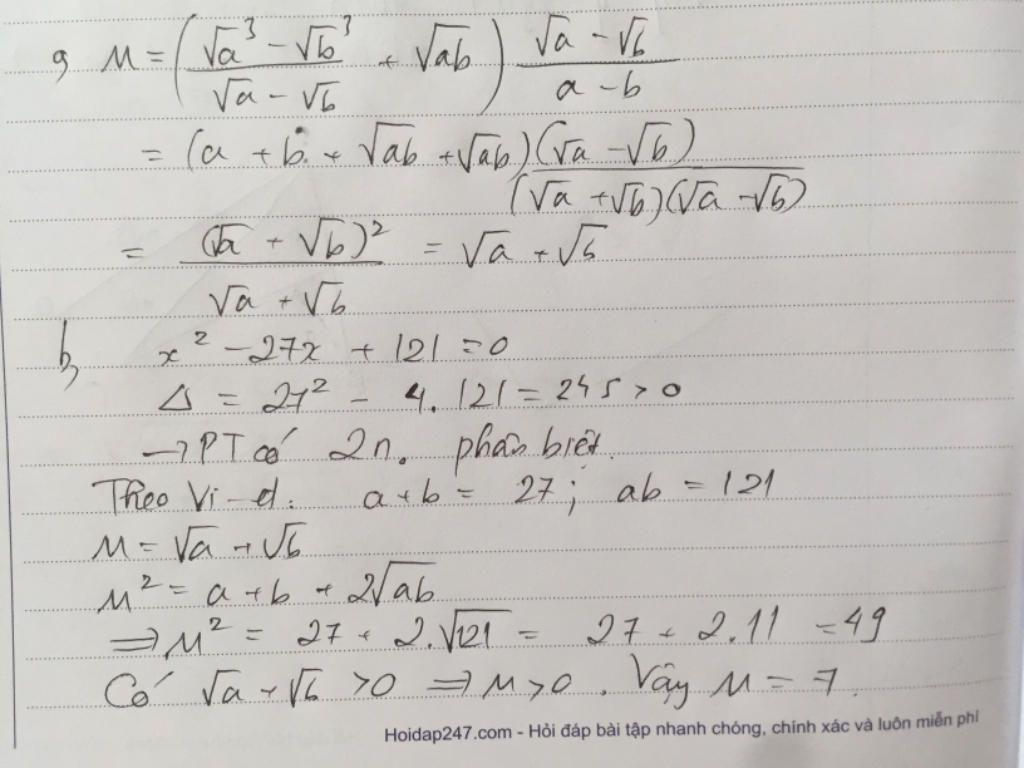 a, M = ((√a³ - √b³)/(√a - √b) + √ab) (√a - √b)/(a - b)
= (a + b + √ab + √ab) (√a - √b)/((√a + √b)(√a - √b))
= (√a + √b)²/(√a + √b) = √a + √b
b, x² - 27x + 121 = 0
Δ = 27² - 4.121 = 245 > 0
→ PT có 2n. phân biệt.
Theo Vi-et: a + b = 27; ab = 121
M = √a + √b
M² = a + b + 2√ab
⇒ M² = 27 + 2.√121 = 27 + 2.11 = 49
Có √a + √b > 0 ⇒ M > 0. Vậy M = 7.
Hoidap247.com - Hỏi đáp bài tập nhanh chóng, chính xác và luôn miễn phí